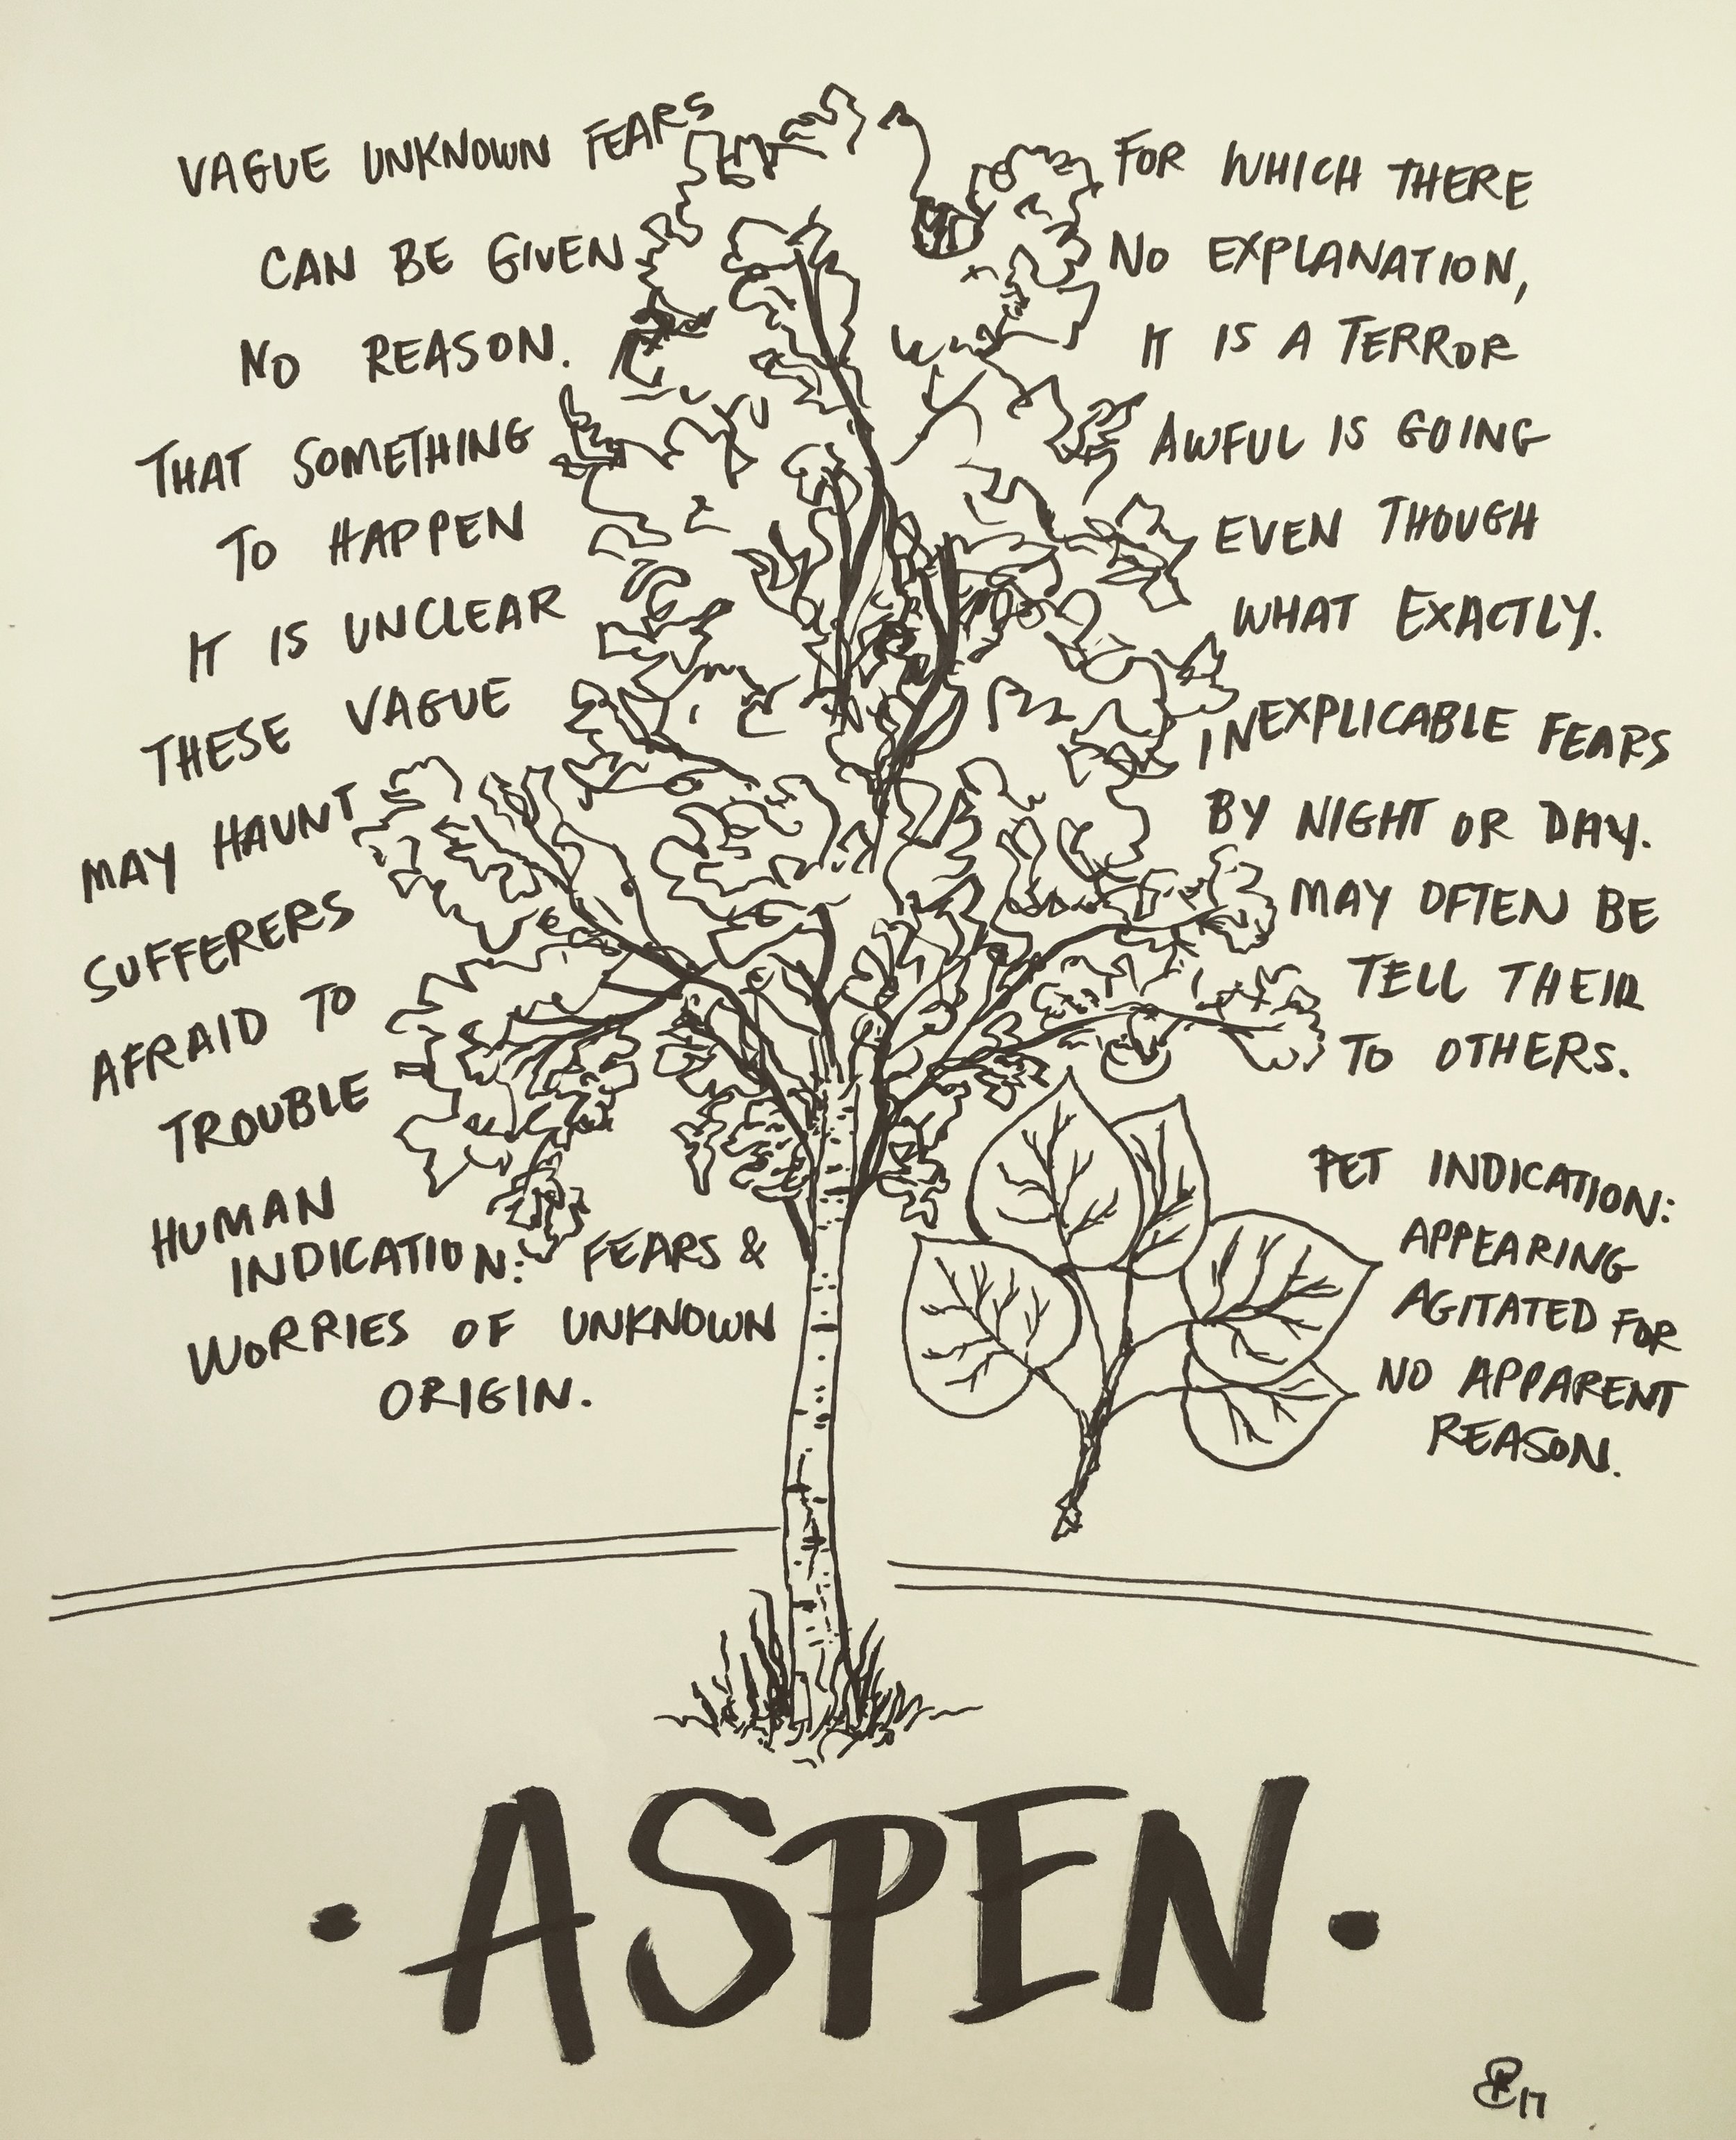 VAGUE UNKNOWN FEARS FOR WHICH THERE
CAN BE GIVEN NO EXPLANATION,
NO REASON. IT IS A TERROR
THAT SOMETHING AWFUL IS GOING
TO HAPPEN EVEN THOUGH
IT IS UNCLEAR WHAT EXACTLY.
THESE VAGUE INEXPLICABLE FEARS
MAY HAUNT BY NIGHT OR DAY.
SUFFERERS MAY OFTEN BE
AFRAID TO TELL THEIR
TROUBLE TO OTHERS.
HUMAN
INDICATION: FEARS &
WORRIES OF UNKNOWN
ORIGIN.
PET INDICATION:
APPEARING
AGITATED FOR
NO APPARENT
REASON.
• ASPEN •
17